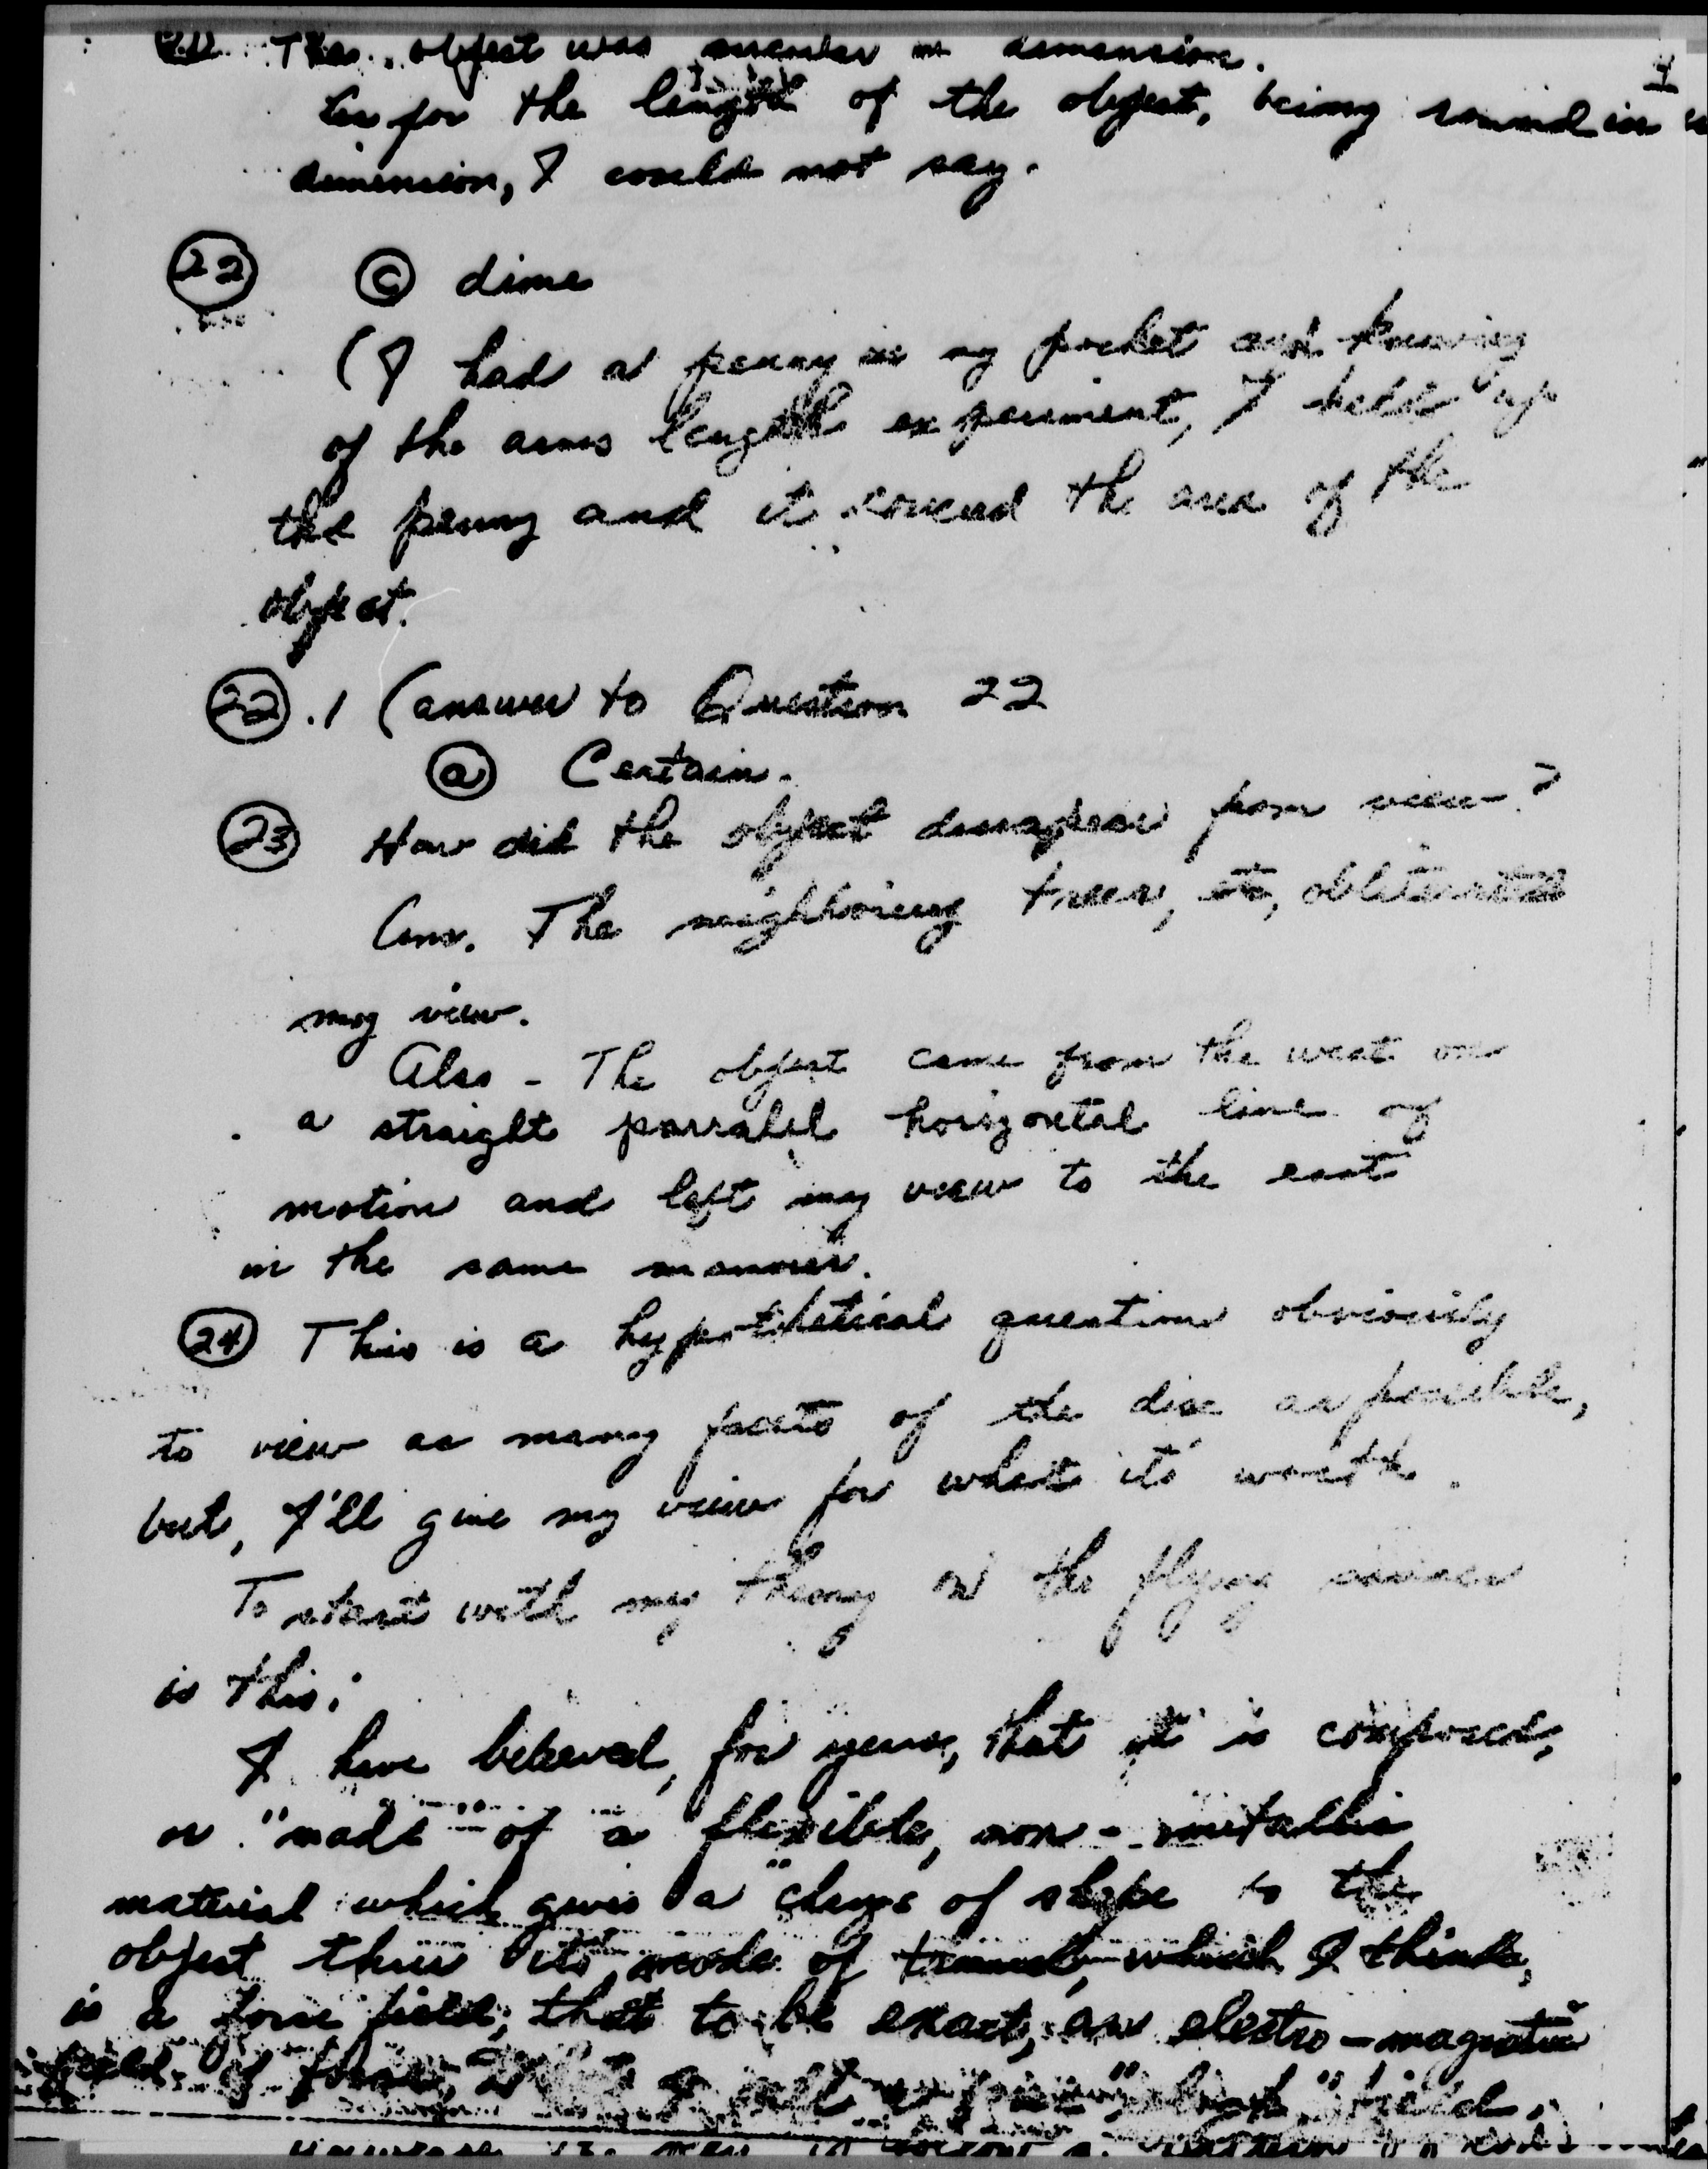 The object was circular in dimension.
4
As for the length of the object, being round in
dimension, I could not say.
22 C dime
(I had a penny in my pocket and knowing
of the arms length experiment, I held up
the penny and it covered the area of the
object.
22.1 (answer to Question 22
a Certain.
23 How did the object dissapear from view?
Ans. The neighboring trees, etc, obliterated
my view.
Also - The object came from the west on
a straight parralel horizontal line of
motion and left my view to the east
in the same manner.
24 This is a hypothetical question obviously
to view as many facets of the disc as possible,
but, I'll give my view for what its worth.
To start with my theory on the flying saucer
is this:
I have believed, for years, that it is composed,
or "made" of a flexible, non-metallic
material which gives a "change of shape to the
object thru its mode of which I think,
is a force field; that to be exact, an electro-magnetic
field of force, I call a field.